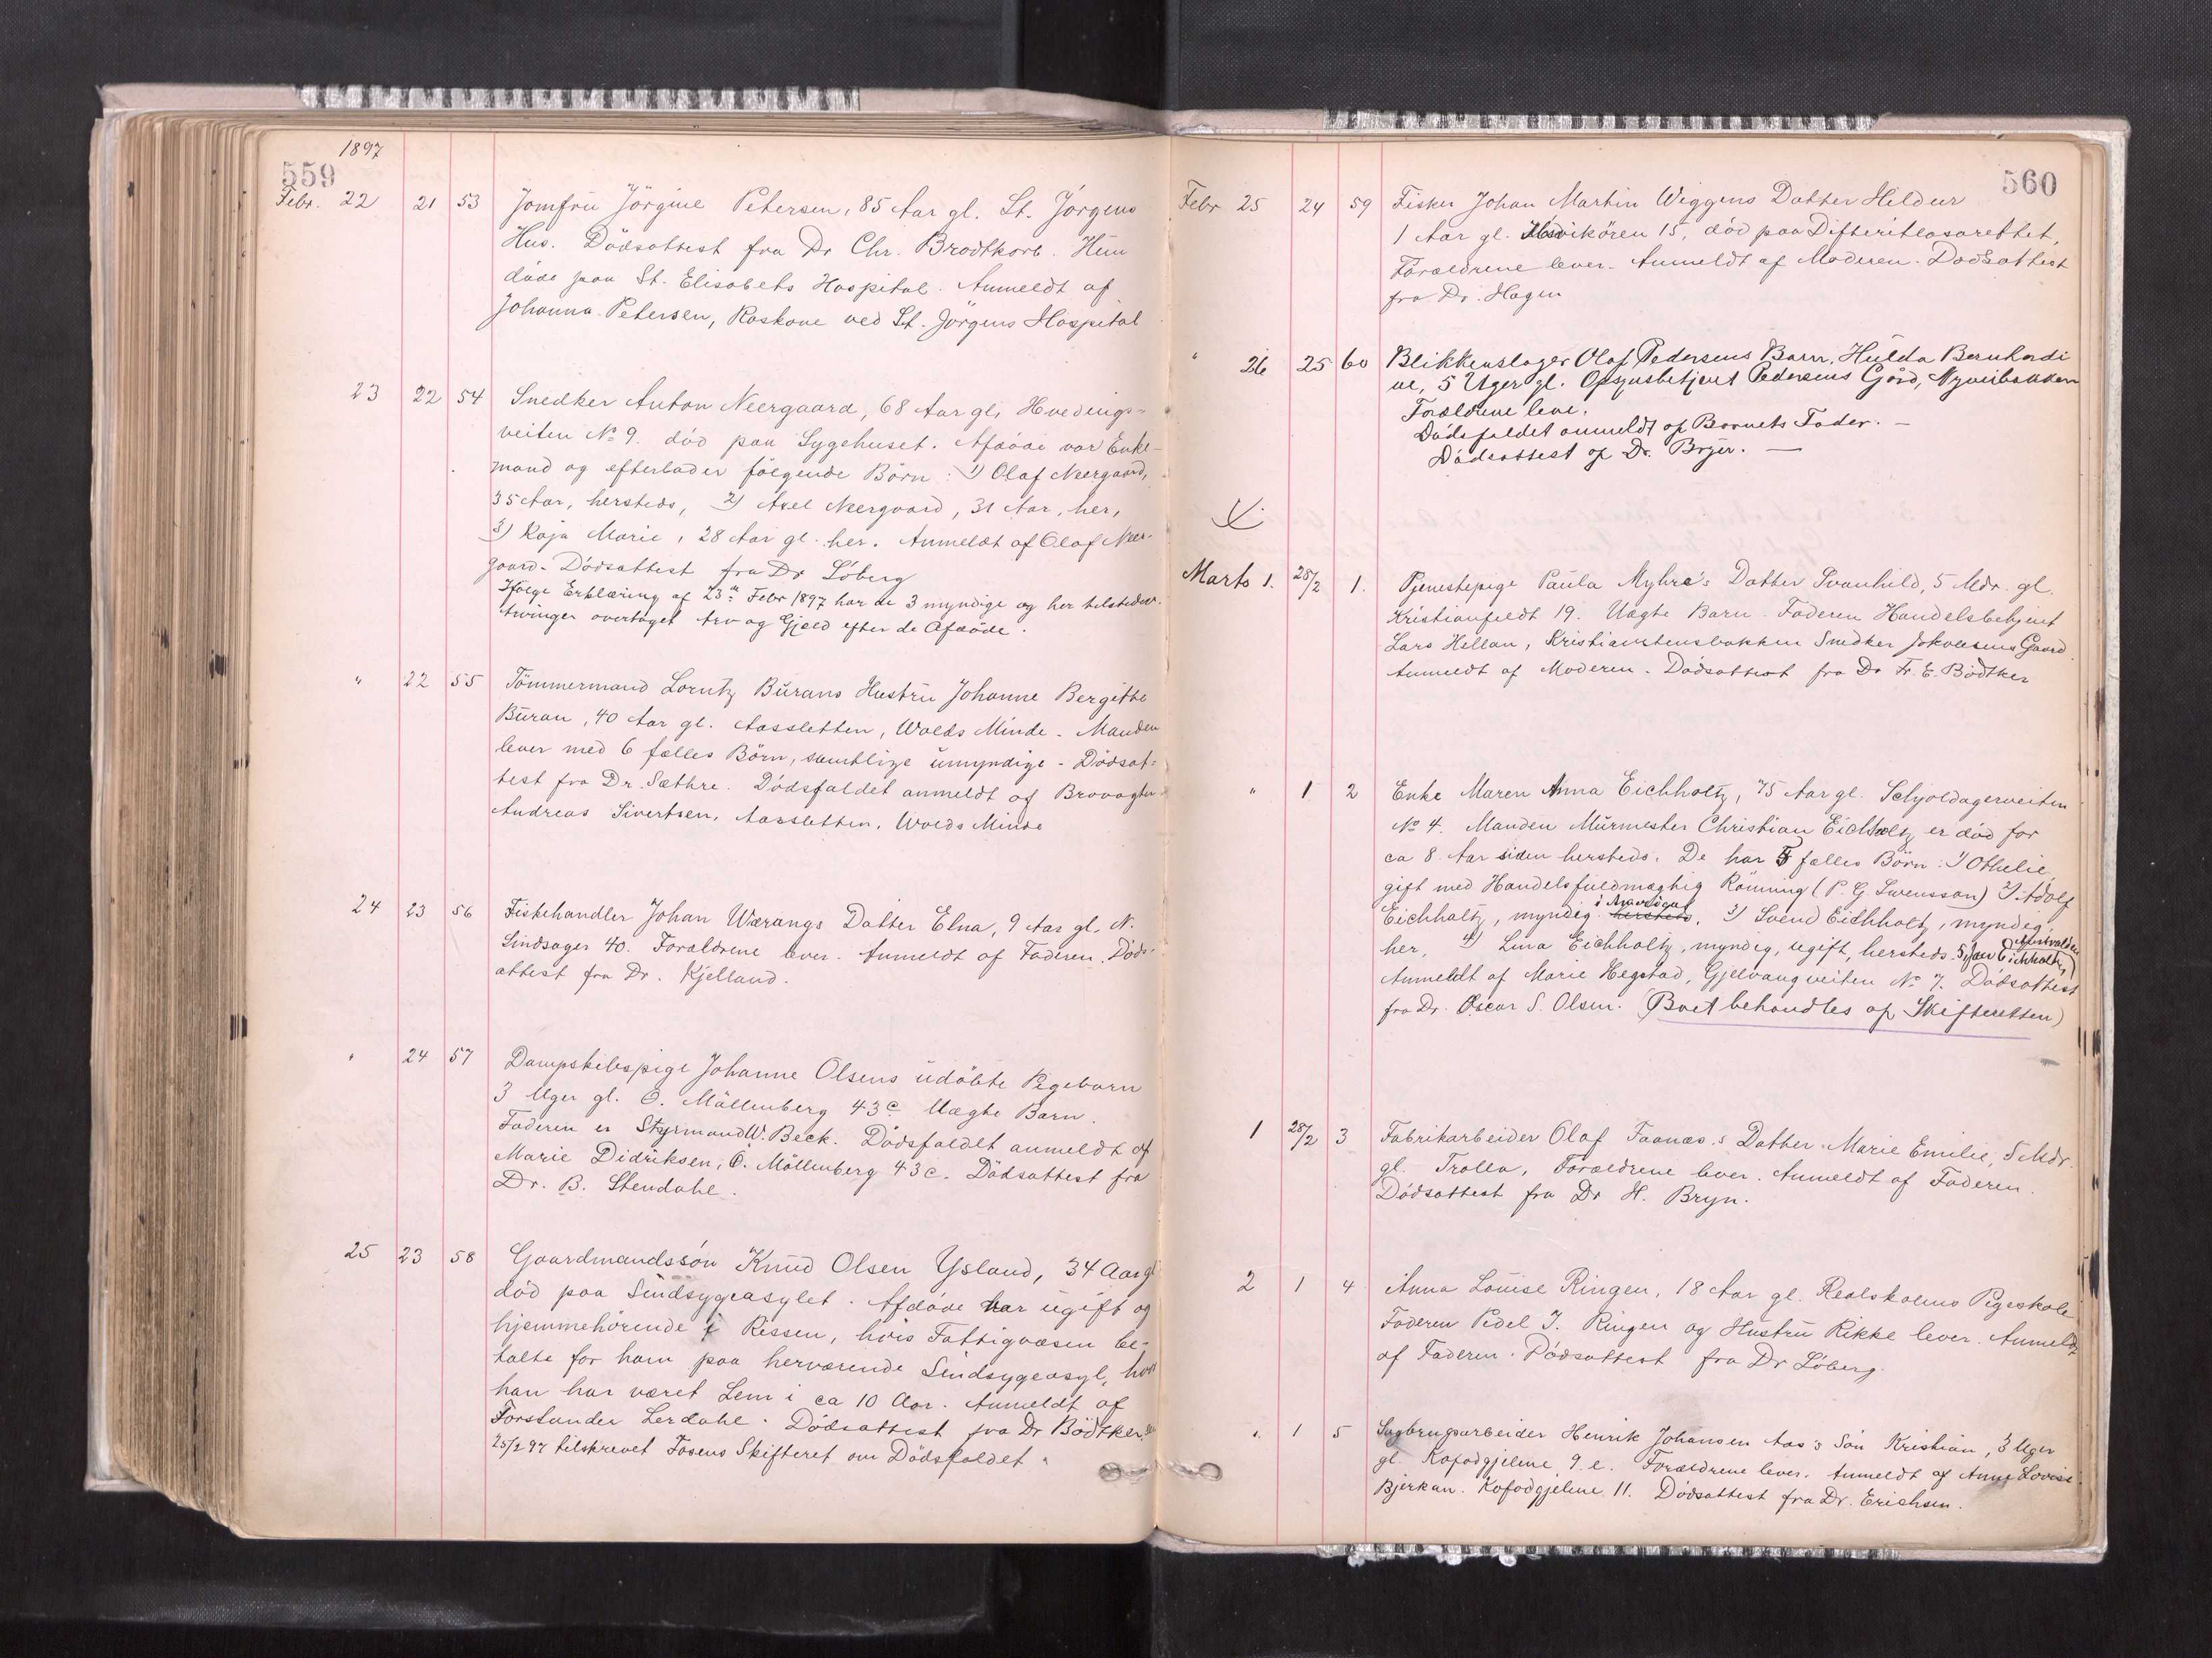 1897
559
Febr. 22 21 53 Jomfru Jörgine Petersen, 85 Aar gl. St. Jörgens
Hus. Dödsattest fra Dr Chr. Brodtkorb. Hun
döde paa St. Elisabets Hospital. Anmeldt af
Johanna Petersen, Raskone ved St. Jörgens Hospital
23 22 54 Snedker Anton Neergaard, 68 Aar gl, Hvedings-
veiten No 9. död paa Sygehuset. Afdöde var Enke-
mand og efterlader fölgende Börn: 1) Olaf Neergaard,
35 Aar, hersteds, 2) Axel Neergaard, 31 Aar, her,
3) Kaja Marie, 28 Aar gl. her. Anmeldt af Olaf Neer-
gaard. Dödsattest fra Dr Löberg
Ifölge Erklæring af 23de Febr 1897 har de 3 myndige og her tilstedev.
Arvinger overtaget Arv og Gjæld efter de Afdöde.
" 22 55 Tömmermand Lorntz Burans Hustru Johanne Bergitte
Buran, 40 Aar gl. Aassletten, Wolds Minde. Manden
lever med 6 fælles Börn, samtlige umyndige - Dödsat-
test fra Dr. Sæthre. Dödsfaldet anmeldt af Brovagter
Andreas Sivertsen, Aassletten, Wolds Minde
24 23 56 Fiskehandler Johan Wærangs Datter Elna, 9 Aar gl. N.
Sindsager 40. Forældrene lever. Anmeldt af Faderen. Döds-
attest fra Dr. Kjelland.
" 24 57 Dampskibspige Johanne Olsens udöbte Pigebarn
3 Uger gl. Ö. Möllenberg 43c Uægte Barn.
Faderen er Styrmand W. Beck. Dödsfaldet anmeldt af
Marie Didriksen, Ö. Möllenberg 43c. Dödsattest fra
Dr. B. Stendahl.
25 23 58 Gaardmandssön Knud Olsen Ysland, 34 Aar gl
död paa Sindsygeasylet. Afdöde var ugift og
hjemmehörende i Rissen, hvis Fattigvæsen be-
talte for ham paa herværende Sindsygeasyl, hvor
han har været Lem i ca 10 Aar. Anmeldt af
Forstander Lerdahl. Dödsattest fra Dr Bödtker.
25/2 97 tilskrevet Fosens Skifteret om Dödsfaldet.
560
Febr 25 24 59 Fisker Johan Martin Wiggens Datter Hildur
1 Aar gl. Ilsvikören 15, död paa Difteritlasarettet,
Forældrene lever. Anmeldt af Moderen. Dödsattest
fra Dr. Hagen
" 26 25 60 Blikkenslager Olaf Pedersens Barn, Hulda Bernhardi
ne, 5 Uger gl. Opsynsbetjent Pedersens Gård, Nyveibakken
Forældrene leve.
Dödsfaldet anmeldt af Barnets Fader. —
Dödsattest af Dr. Bryn. —
Marts 1. 28/2 1. Tjenestepige Paula Myhre's Datter Svanhild, 5 Mdr. gl.
Kristianfeldt 19. Uægte Barn. Faderen Handelsbetjent
Lars Hellan, Kristianstensbakken Snedker Jakobsens Gaard.
Anmeldt af Moderen. Dödsattest fra Dr Fr. E. Bödtker
" 1 2 Enke Maren Anna Eichholtz, 75 Aar gl. Schjoldagerveiten
No 4. Manden Murmester Christian Eichholtz er död for
ca 8 Aar siden hersteds. De har 5 fælles Börn: 1) Othelie,
gift med Handelsfuldmægtig Rönning (P. G. Svensson) 2) Adolf
Eichholtz, myndig i Amerika hersteds, 3) Svend Eichholtz, myndig,
her, 4) Lina Eichholtz, myndig, ugift, hersteds. 5) Jan Eichholtz,
Anmeldt af Marie Hegstad, Gjelvangveiten No 7. Dödsattest
fra Dr. Oscar S. Olsen. (Boet behandles af Skifteretten)
1 28/2 3 Fabrikarbeider Olaf Faanæs's Datter Marie Emilie, 5 Mdr.
gl. Trolla, Forældrene lever. Anmeldt af Faderen.
Dödsattest fra Dr H. Bryn.
2 1 4 Anna Louise Ringen, 18 Aar gl. Realskolens Pigeskole
Faderen Pedel J. Ringen og Hustru Rikke lever. Anmeldt
af Faderen. Dödsattest fra Dr Löberg.
" 1 5 Sagbrugsarbeider Henrik Johansen Aas's Sön Kristian, 3 Uger
gl. Kofodgjelene 9.e. Forældrene lever. Anmeldt af Anne Lovise
Bjerkan. Kofodgjelene 11. Dödsattest fra Dr. Erichsen.